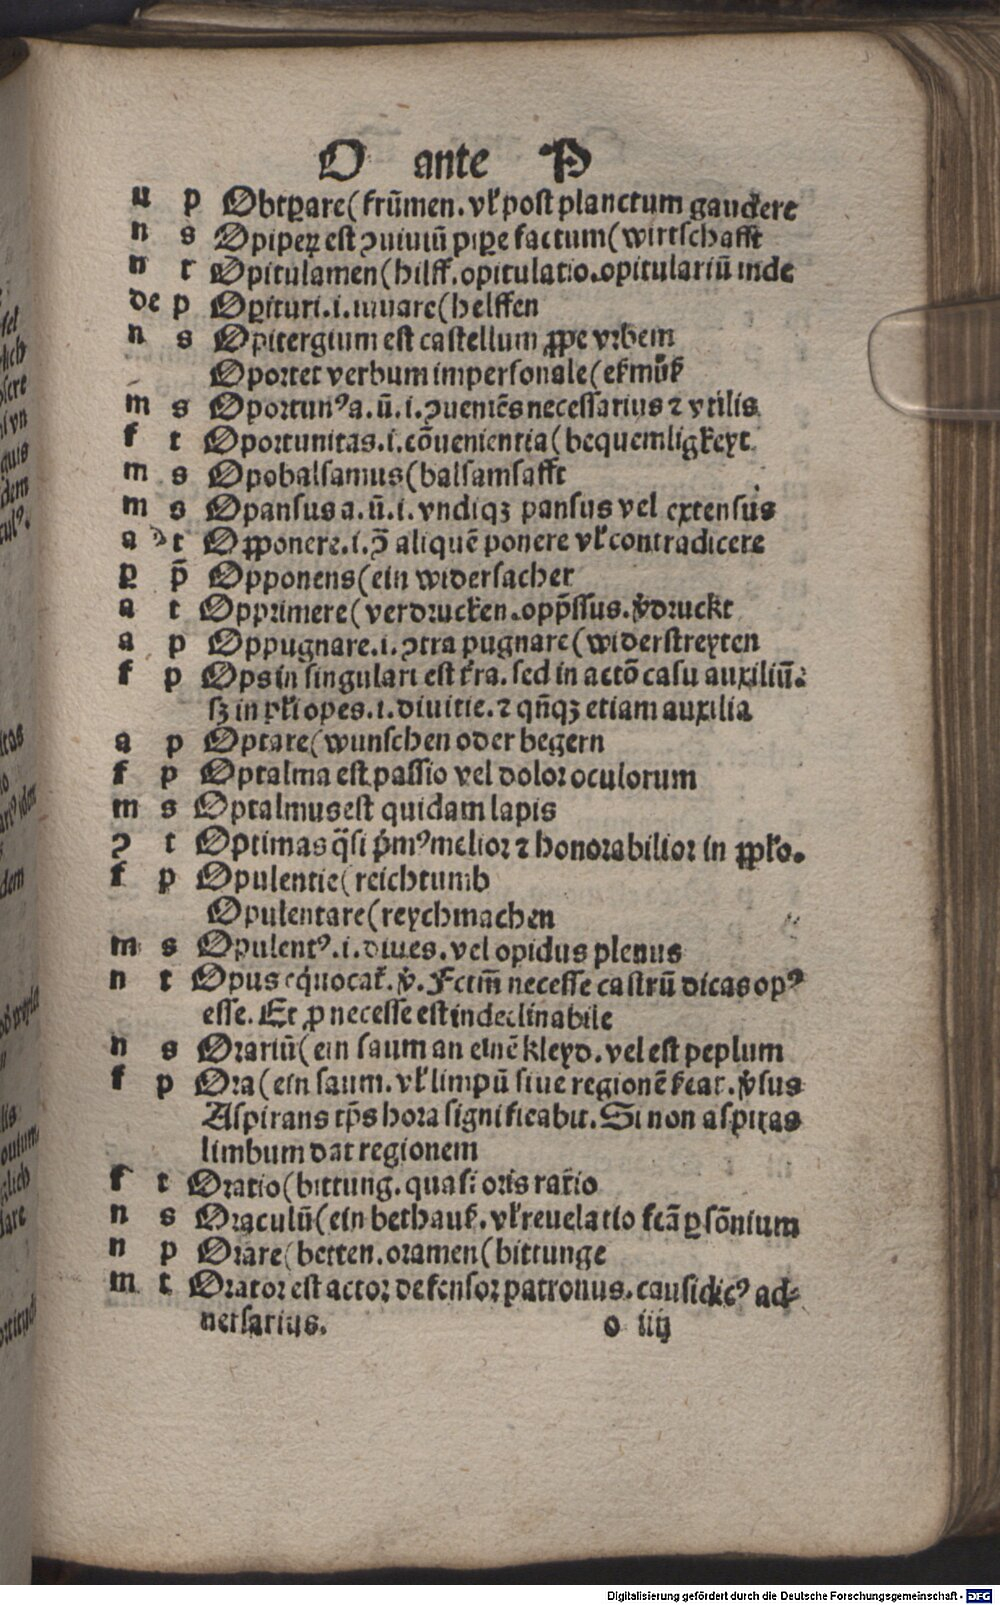 O ante P
n p Obtꝑare( frūmen. vł post planctum gaudere
n s Opiperꝫ est ꝯuiuiū pipe factum( wirtschafft
n t Opitulamen( hilff. opitulatio. opitulariū inde
de p Opituri. i. iuuare( helffen
n s Opitergium est castellum ꝓpe vrbem
Oportet verbum impersonale(
m s Oportunꝰ a. ū. i. ꝯueniēs necessarius ⁊ vtilis
f t Oportunitas. i. cōuenientia( bequemligkeyt
m s Opobalsamus( balsamsafft
m s Opansus a. ū. i. vndiqꝫ pansus vel extensus
a t Oꝓponere. i. ꝯ̄ aliquē ponere vł contradicere
p p̄ Opponens( ein widersacher
a t Opprimere( verdrucken. opp̄ssus. v̓druckt
a p Oppugnare. i. ꝯtra pugnare( widerstreyten
f p Ops in singulari est tr̄a. sed in actō casu auxiliū.
sꝫ in płi opes. i. diuitie. ⁊ qn̄qꝫ etiam auxilia
a p Optare( wunschen oder begern
f p Optalma est passio vel dolor oculorum
m s Optalmus est quidam lapis
ꝯ t Optimas q̄si p̓mꝰ melior ⁊ honorabilior in ꝓpło.
f p Opulentie( reichtumb
Opulentare( reychmachen
m s Opulentꝰ. i. diues. vel opidus plenus
n t Opus eq̓uocat̄. v̓. necesse castrū dicas opꝰ
esse. Et ꝓ necesse est indeclinabile
n s Orariū( ein saum an einē kleyd. vel est peplum
f p Ora( ein saum. vł limpū siue regionē v̓sus
Aspirans tp̄s hora significabit. Si non aspiras
limbum dat regionem
f t Oratio( bittung. quasi oris ratio
n s Oraculū( ein bethauß. vł reuelatio fcā ꝑ sōnium
n p Orare( betten. oramen( bittunge
m t Orator est actor defensor patronus. causidicꝰ ad⸗
uersarius. o iiij
Digitalisierung gefördert durch die Deutsche Forschungsgemeinschaft - DFG